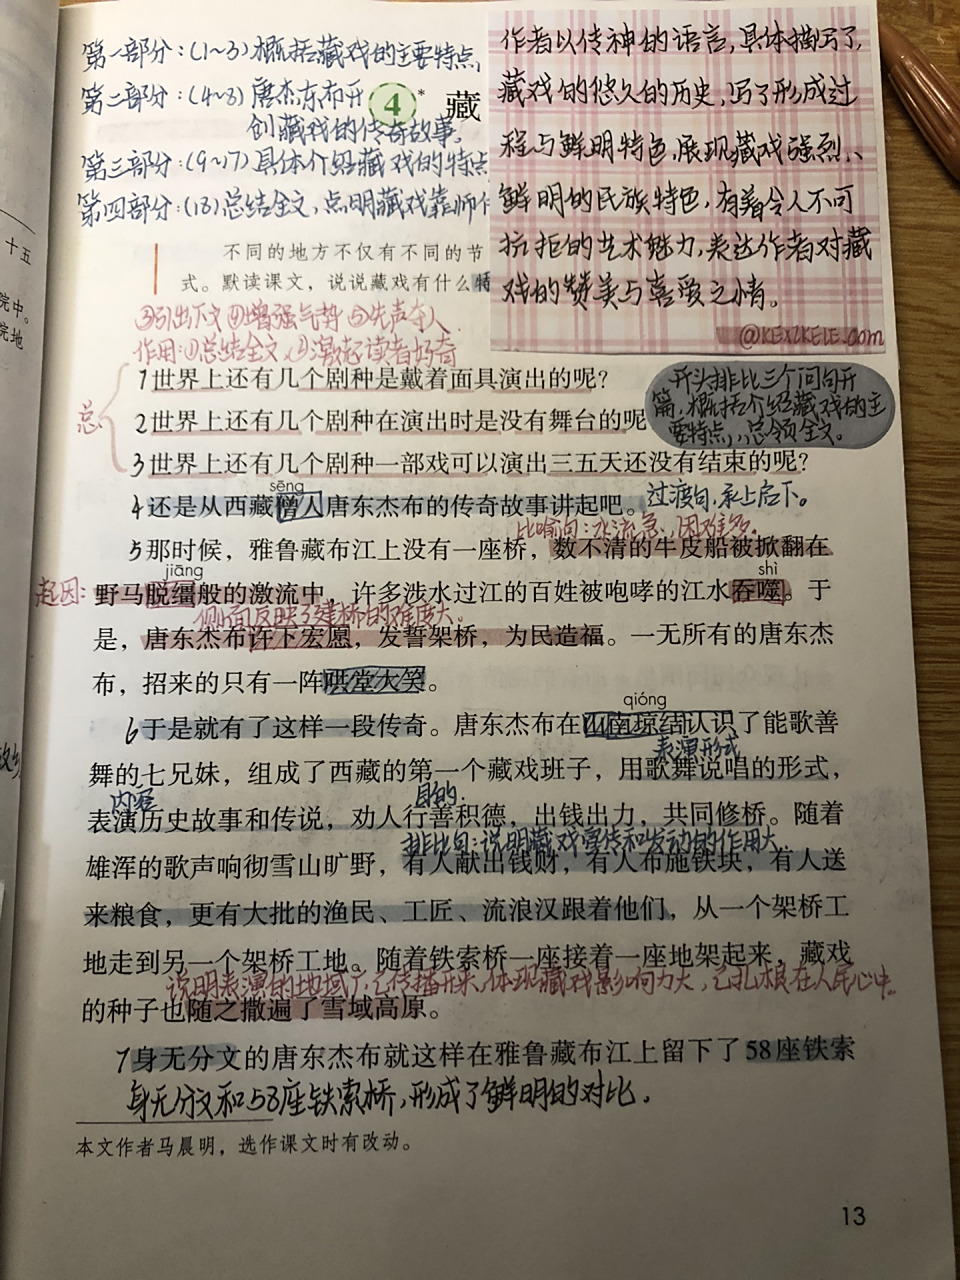 第一部分：(1~3)概括藏戏的主要特点,
第二部分：(4~8)唐杰东布开
创藏戏的传奇故事。
第三部分：(9~17)具体介绍藏戏的特点
第四部分：(18)总结全文,点明藏戏靠师
4*
藏
作者以传神的语言,具体描写了,
藏戏的悠久的历史,写了形成过
程与鲜明特色,展现藏戏强烈、
鲜明的民族特色,有着令人不可
抗拒的艺术魅力,表达作者对藏
戏的赞美与喜爱之情。
@KEXZKELE.com
不同的地方不仅有不同的节
式。默读课文，说说藏戏有什么特
③引出下文④增强气势⑤先声夺人.
作用:①总结全文.②激起读者好奇
总
1世界上还有几个剧种是戴着面具演出的呢？
2世界上还有几个剧种在演出时是没有舞台的呢
3世界上还有几个剧种一部戏可以演出三五天还没有结束的呢？
开头排比三个问句开
篇,概括介绍藏戏的主
要特点,总领全文。
sēng
4还是从西藏僧人唐东杰布的传奇故事讲起吧。
过渡句,承上启下。
比喻句：水流急、困难多。
5那时候，雅鲁藏布江上没有一座桥，数不清的牛皮船被掀翻在
jiāng
shì
起因:
野马脱缰般的激流中，许多涉水过江的百姓被咆哮的江水吞噬。于
侧面反映了建桥的难度大。
是，唐东杰布许下宏愿，发誓架桥，为民造福。一无所有的唐东杰
布，招来的只有一阵哄堂大笑。
qióng
6于是就有了这样一段传奇。唐东杰布在山南琼结认识了能歌善
表演形式
舞的七兄妹，组成了西藏的第一个藏戏班子，用歌舞说唱的形式，
内容
目的:
表演历史故事和传说，劝人行善积德，出钱出力，共同修桥。随着
排比句:说明藏戏宣传和发动的作用大.
雄浑的歌声响彻雪山旷野，有人献出钱财，有人布施铁块，有人送
来粮食，更有大批的渔民、工匠、流浪汉跟着他们，从一个架桥工
地走到另一个架桥工地。随着铁索桥一座接着一座地架起来，藏戏
说明表演的地域广,已传播开来,体现藏戏影响力大,已扎根在人民心中。
的种子也随之撒遍了雪域高原。
7身无分文的唐东杰布就这样在雅鲁藏布江上留下了58座铁索
身无分文和58座铁索桥,形成了鲜明的对比.
本文作者马晨明，选作课文时有改动。
13
十五
院中。
院地